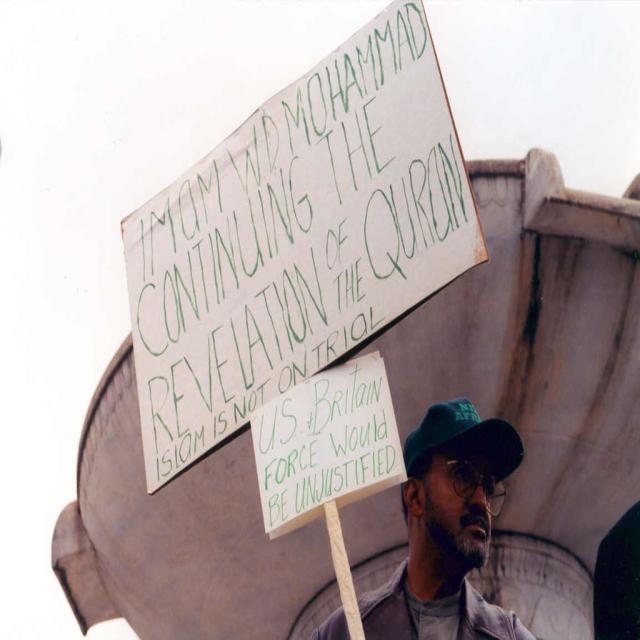 IMAM WD MOHAMMAD
CONTINUING THE
REVELATION OF THE QURAN
ISLAM IS NOT ON TRIAL
U.S. Britain
FORCE Would
BE UNJUSTIFIED